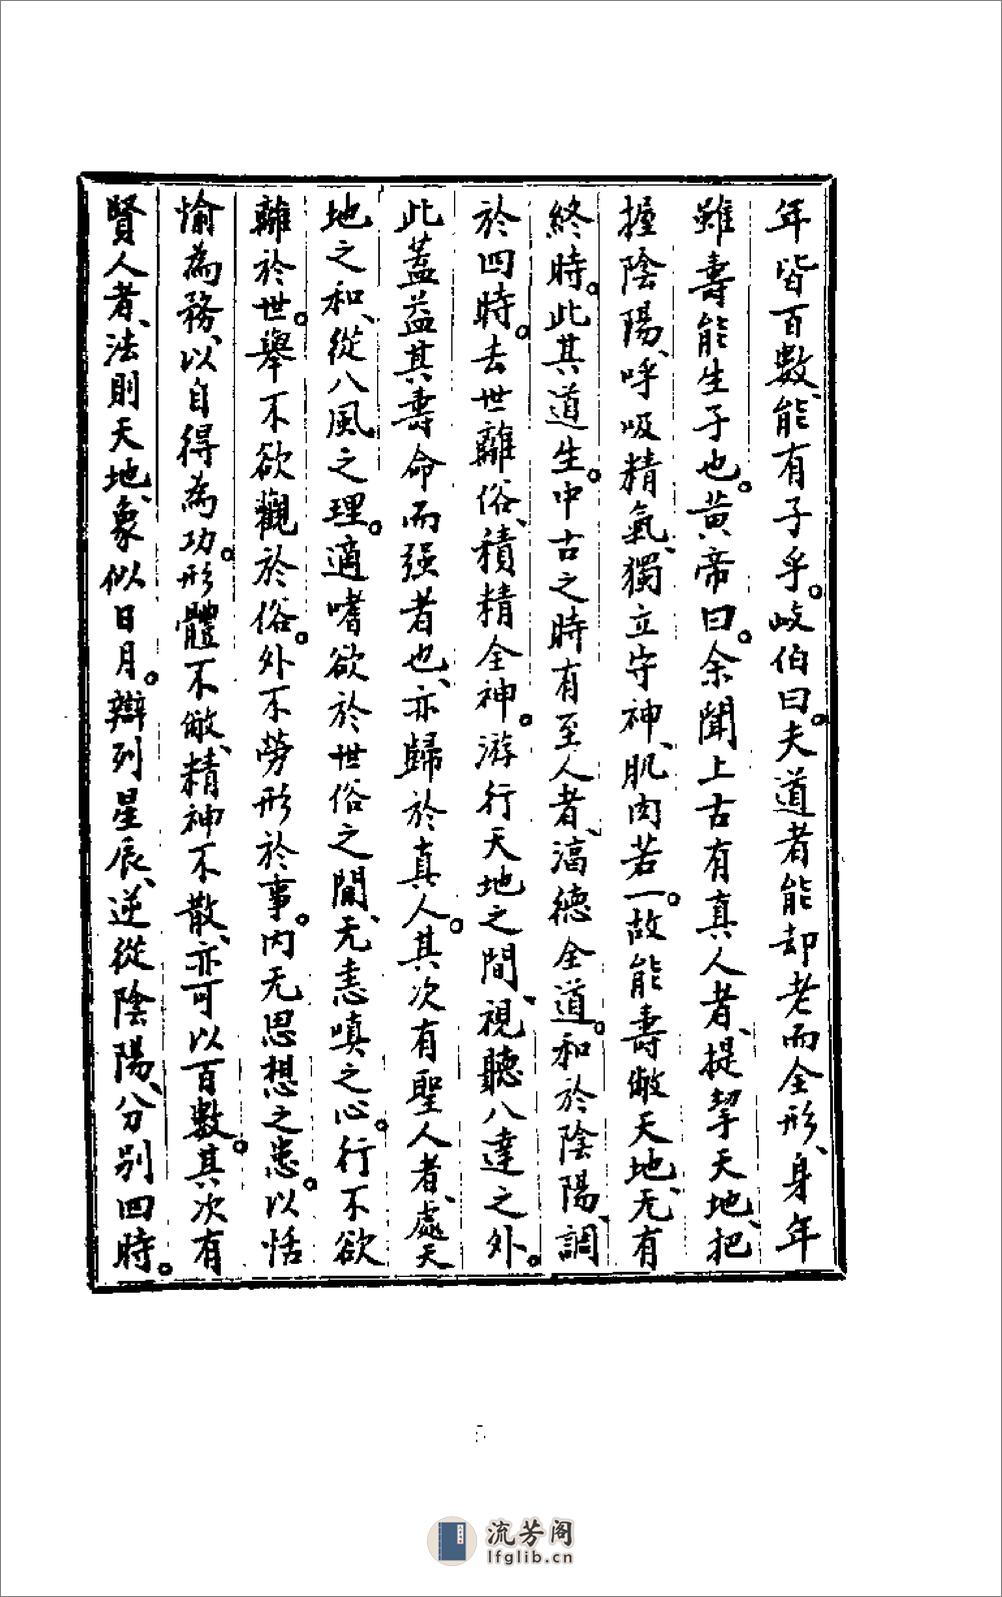 年皆百數、能有子乎。岐伯曰。夫道者能却老而全形、身年
雖壽能生子也。黃帝曰。余聞上古有真人者、提挈天地、把
握陰陽、呼吸精氣、獨立守神、肌肉若一。故能壽敝天地、无有
終時。此其道生。中古之時有至人者、淳德全道。和於陰陽、調
於四時。去世離俗、積精全神。游行天地之間、視聽八達之外。
此蓋益其壽命而强者也、亦歸於真人。其次有聖人者、處天
地之和、從八風之理。適嗜欲於世俗之間、无恚嗔之心。行不欲
離於世。舉不欲觀於俗。外不勞形於事。內无思想之患。以恬
愉為務、以自得為功。形體不敝、精神不散、亦可以百數。其次有
賢人者、法則天地、象似日月。辯列星辰、逆從陰陽、分別四時。
流芳阁
lfglib.cn